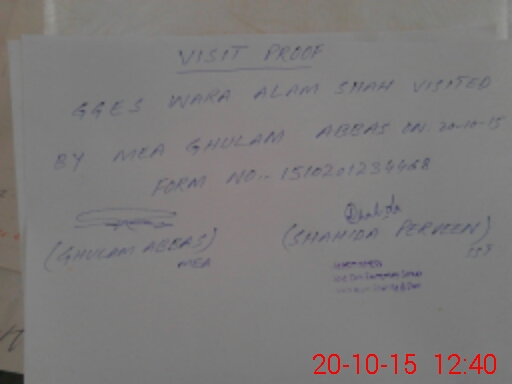 VISIT PROOF
GGES WARA ALAM SHAH VISITED
BY MEA GHULAM ABBAS ON. 20-10-15
FORM NO:- 
Shahida
(GHULAM ABBAS) (SHAHIDA PERVEEN)
MEA
20-10-15 12:40